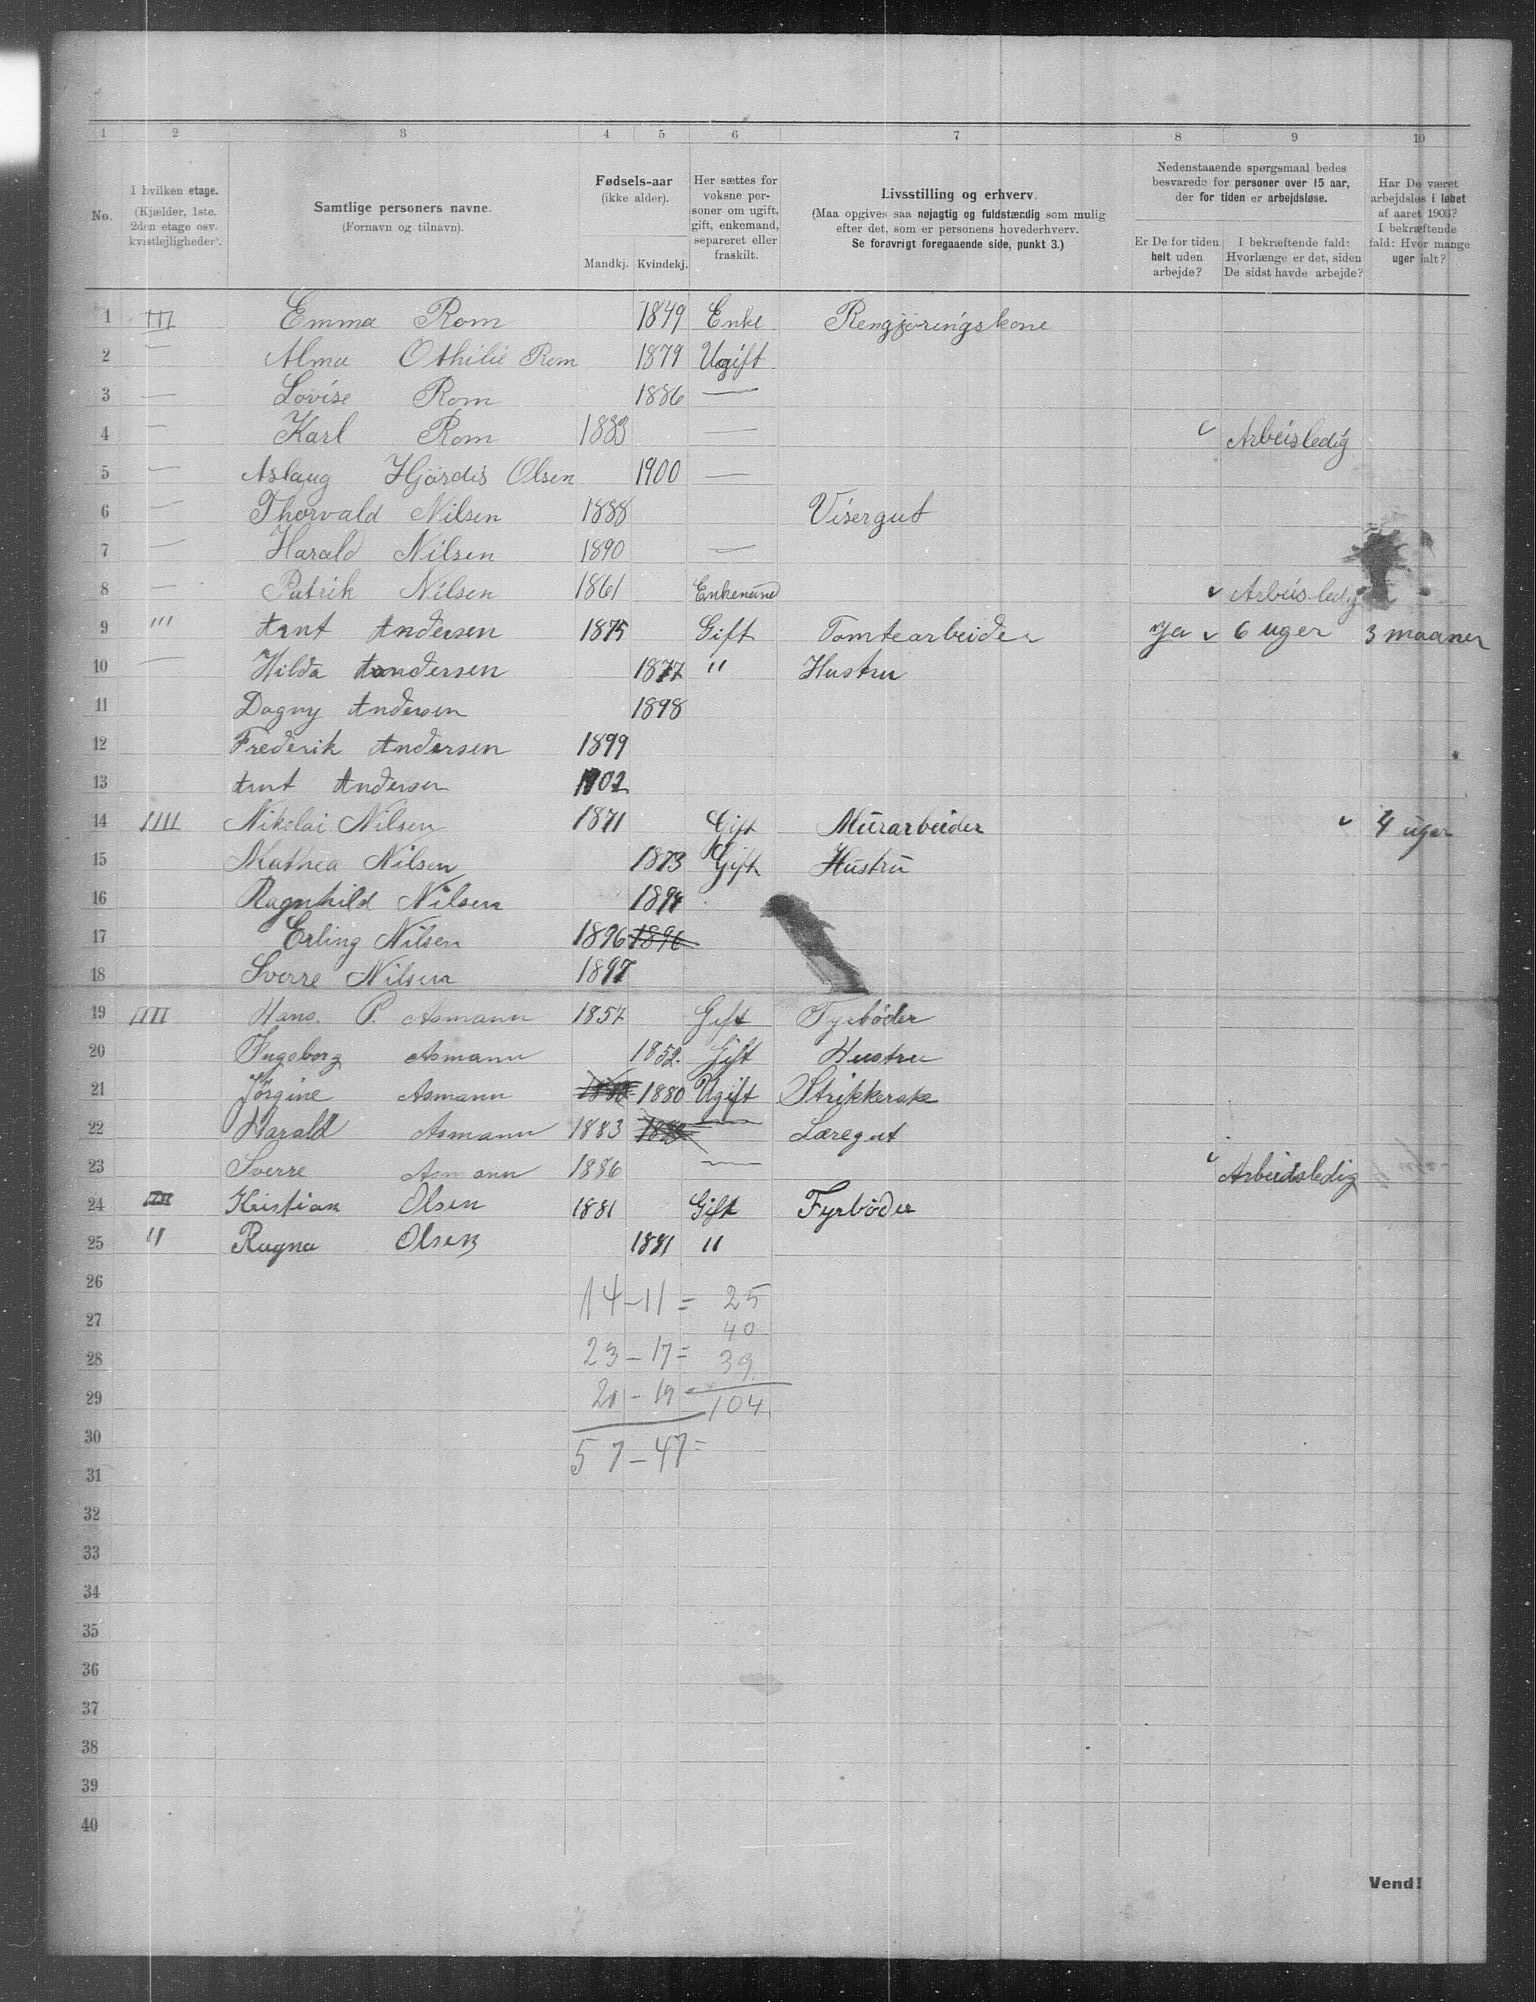 1 2 3 4 5 6 7 8 9 10
No. I hvilken etage. (Kjælder, 1ste. 2den etage osv. kvistlejligheder). Samtlige personers navne. (Fornavn og tilnavn). Fødsels-aar (ikke alder). Mandkj. Kvindekj. Her sættes for voksne personer om ugift, gift, enkemand, separeret eller fraskilt. Livsstilling og erhverv. (Maa opgives saa nøjagtig og fuldstændig som mulig efter det, som er personens hovederhverv. Se forøvrigt foregaaende side, punkt 3.) Nedenstaaende spørgsmaal bedes besvarede for personer over 15 aar, der for tiden er arbejdsløse. Er De for tiden helt uden arbejde? I bekræftende fald: Hvorlænge er det, siden De sidst havde arbejde? Har De været arbejdsløs i løbet af aaret 1903? I bekræftende fald: Hvor mange uger ialt?
1 III Emma Rom 1849 Enke Rengjøringskone
2 — Alma Othilie Rom 1879 Ugift
3 — Lovise Rom 1886 —
4 — Karl Rom 1883 — Arbeisledig
5 — Aslaug Hjördis Olsen 1900 —
6 — Thorvald Nilsen 1888 Visergut
7 — Harald Nilsen 1890 —
8 — Patrik Nilsen 1861 Enkemand Arbeisledig
9 III Arnt Andersen 1875 Gift Tomtearbeider Ja 6 uger 3 maaner
10 — Hilda Andersen 1877 " Hustru
11 Dagny Andersen 1898
12 Frederik Andersen 1899
13 Arnt Andersen 1902
14 IIII Nikolai Nilsen 1871 Gift Murarbeider 4 uger
15 Mathea Nilsen 1873 Gift Hustru
16 Ragnhild Nilsen 1894
17 Erling Nilsen 1896 1896
18 Sverre Nilsen 1897
19 IIII Hans. P. Asmann 1857 Gift Fyrbøder
20 Ingeborg Asmann 1852. Gift Hustru
21 Jørgine Asmann 1880 1880 Ugift Strikkerske
22 Harald Asmann 1883 — Læregut
23 Sverre Asmann 1886 — Arbeidsledig
24 IIII Kristian Olsen 1881 Gift Fyrbøder
25 " Ragna Olsen 1881 "
26 14 – 11 = 25
27 40
28 23 – 17 = 39
29 21 – 19 104
30 57 – 47 =
31
32
33
34
35
36
37
38
39
40
Vend!